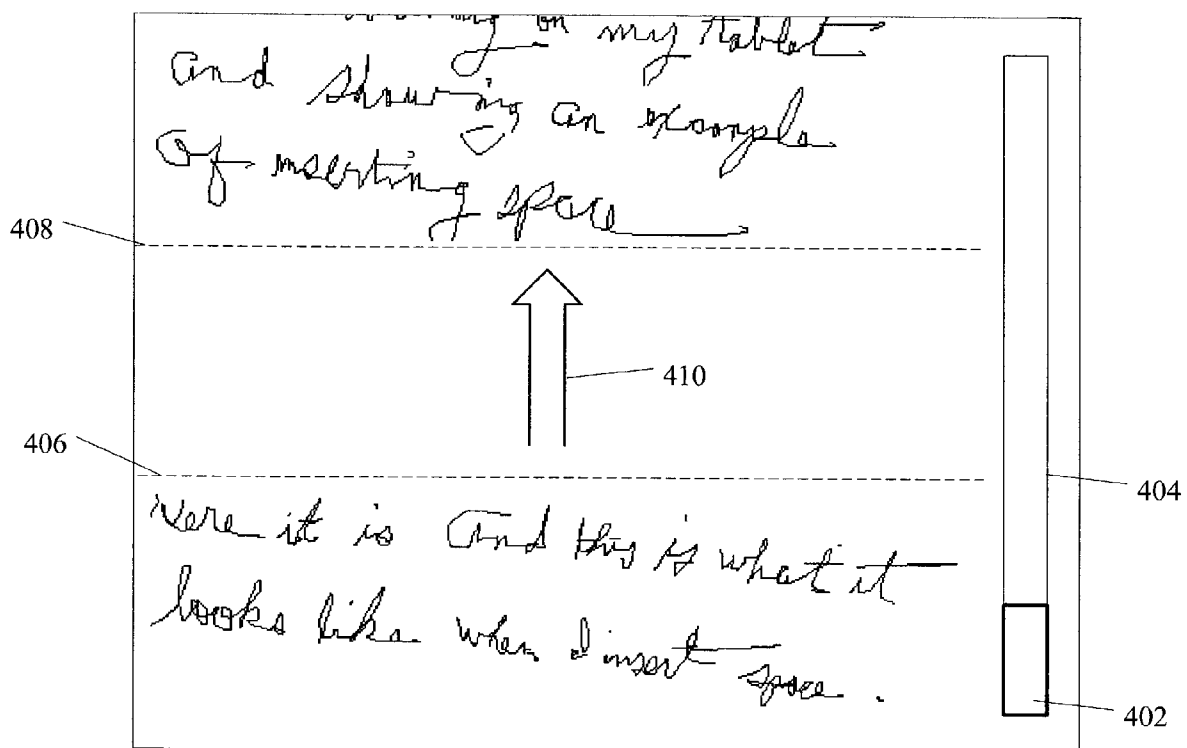 on my tablet
and showing an example
Of inserting space
408
410
406
404
Here it is and this is what it
looks like when I insert space.
402